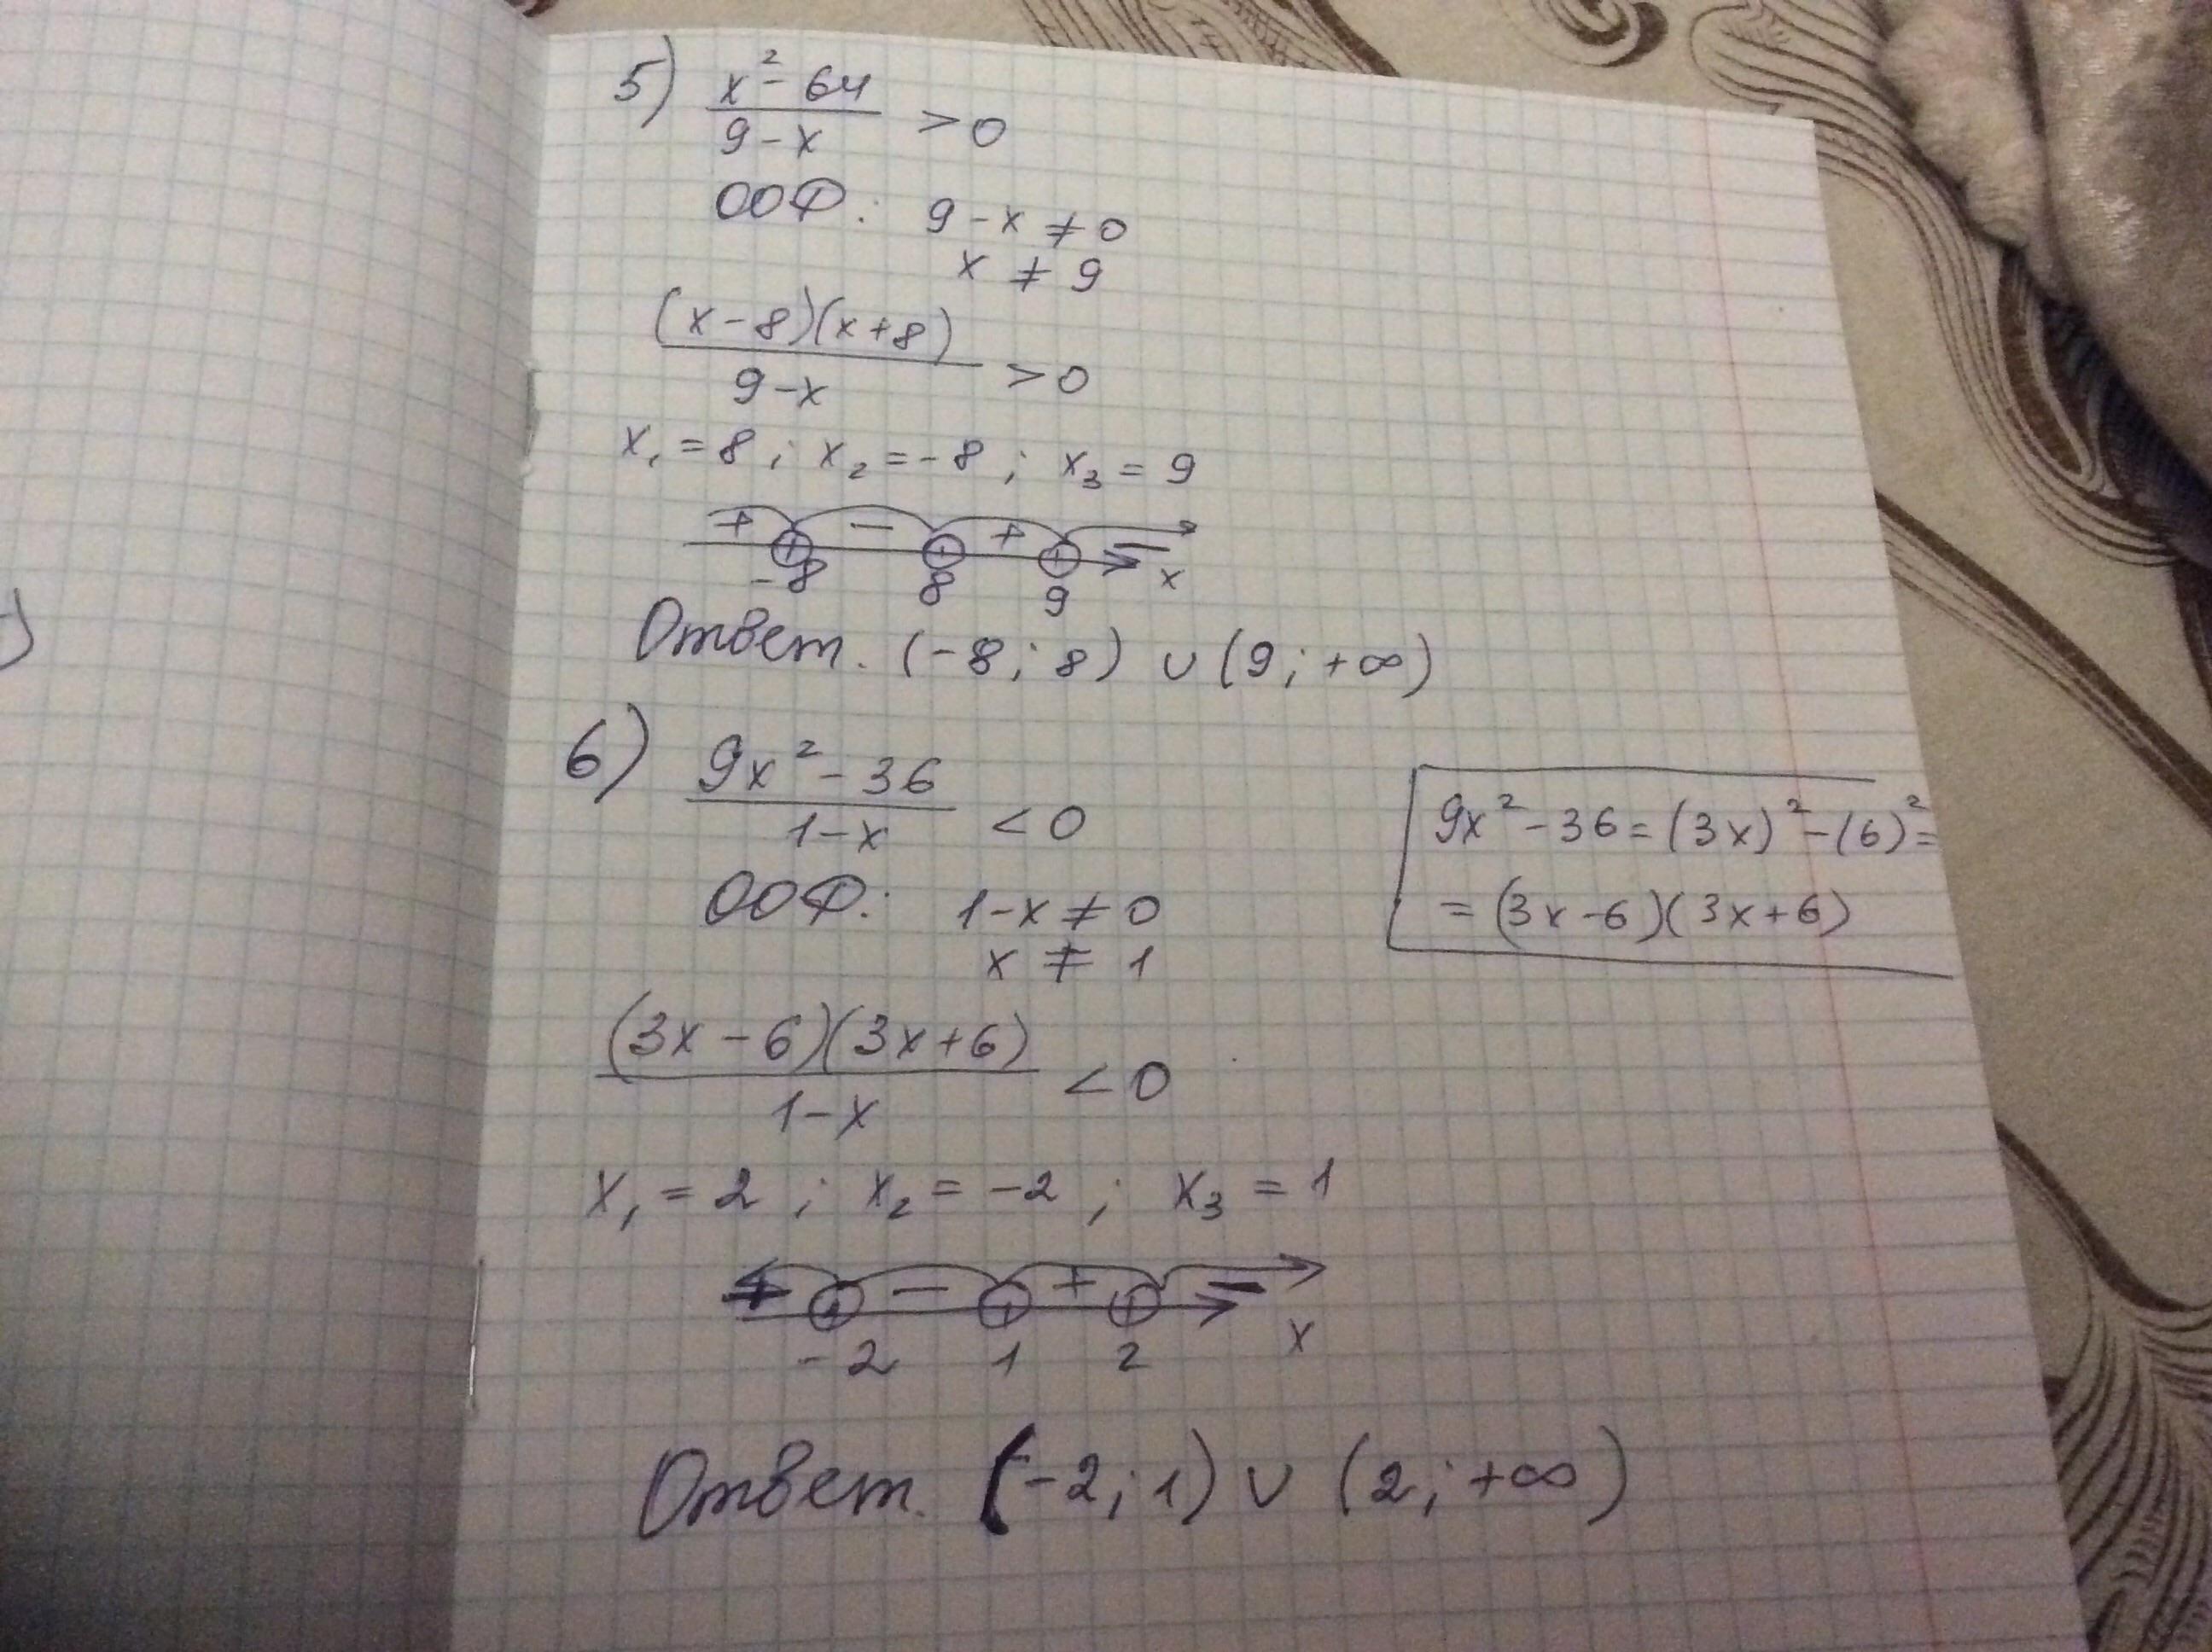 5) (x² - 64)/(9 - x) > 0
ООФ: 9 - x ≠ 0
x ≠ 9
((x - 8)(x + 8))/(9 - x) > 0
x₁ = 8 ; x₂ = -8 ; x₃ = 9
+ - + -
-8 8 9 x
Ответ. (-8; 8) ∪ (9; +∞)
6) (9x² - 36)/(1 - x) < 0
9x² - 36 = (3x)² - (6)² =
= (3x - 6)(3x + 6)
ООФ: 1 - x ≠ 0
x ≠ 1
((3x - 6)(3x + 6))/(1 - x) < 0
x₁ = 2 ; x₂ = -2 ; x₃ = 1
+ - + -
-2 1 2 x
Ответ. (-2; 1) ∪ (2; +∞)